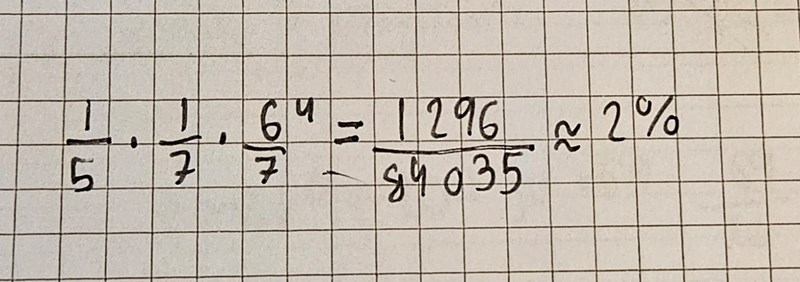 1/5 · 1/7 · 6/7⁴ = 1296/84035 ≈ 2%